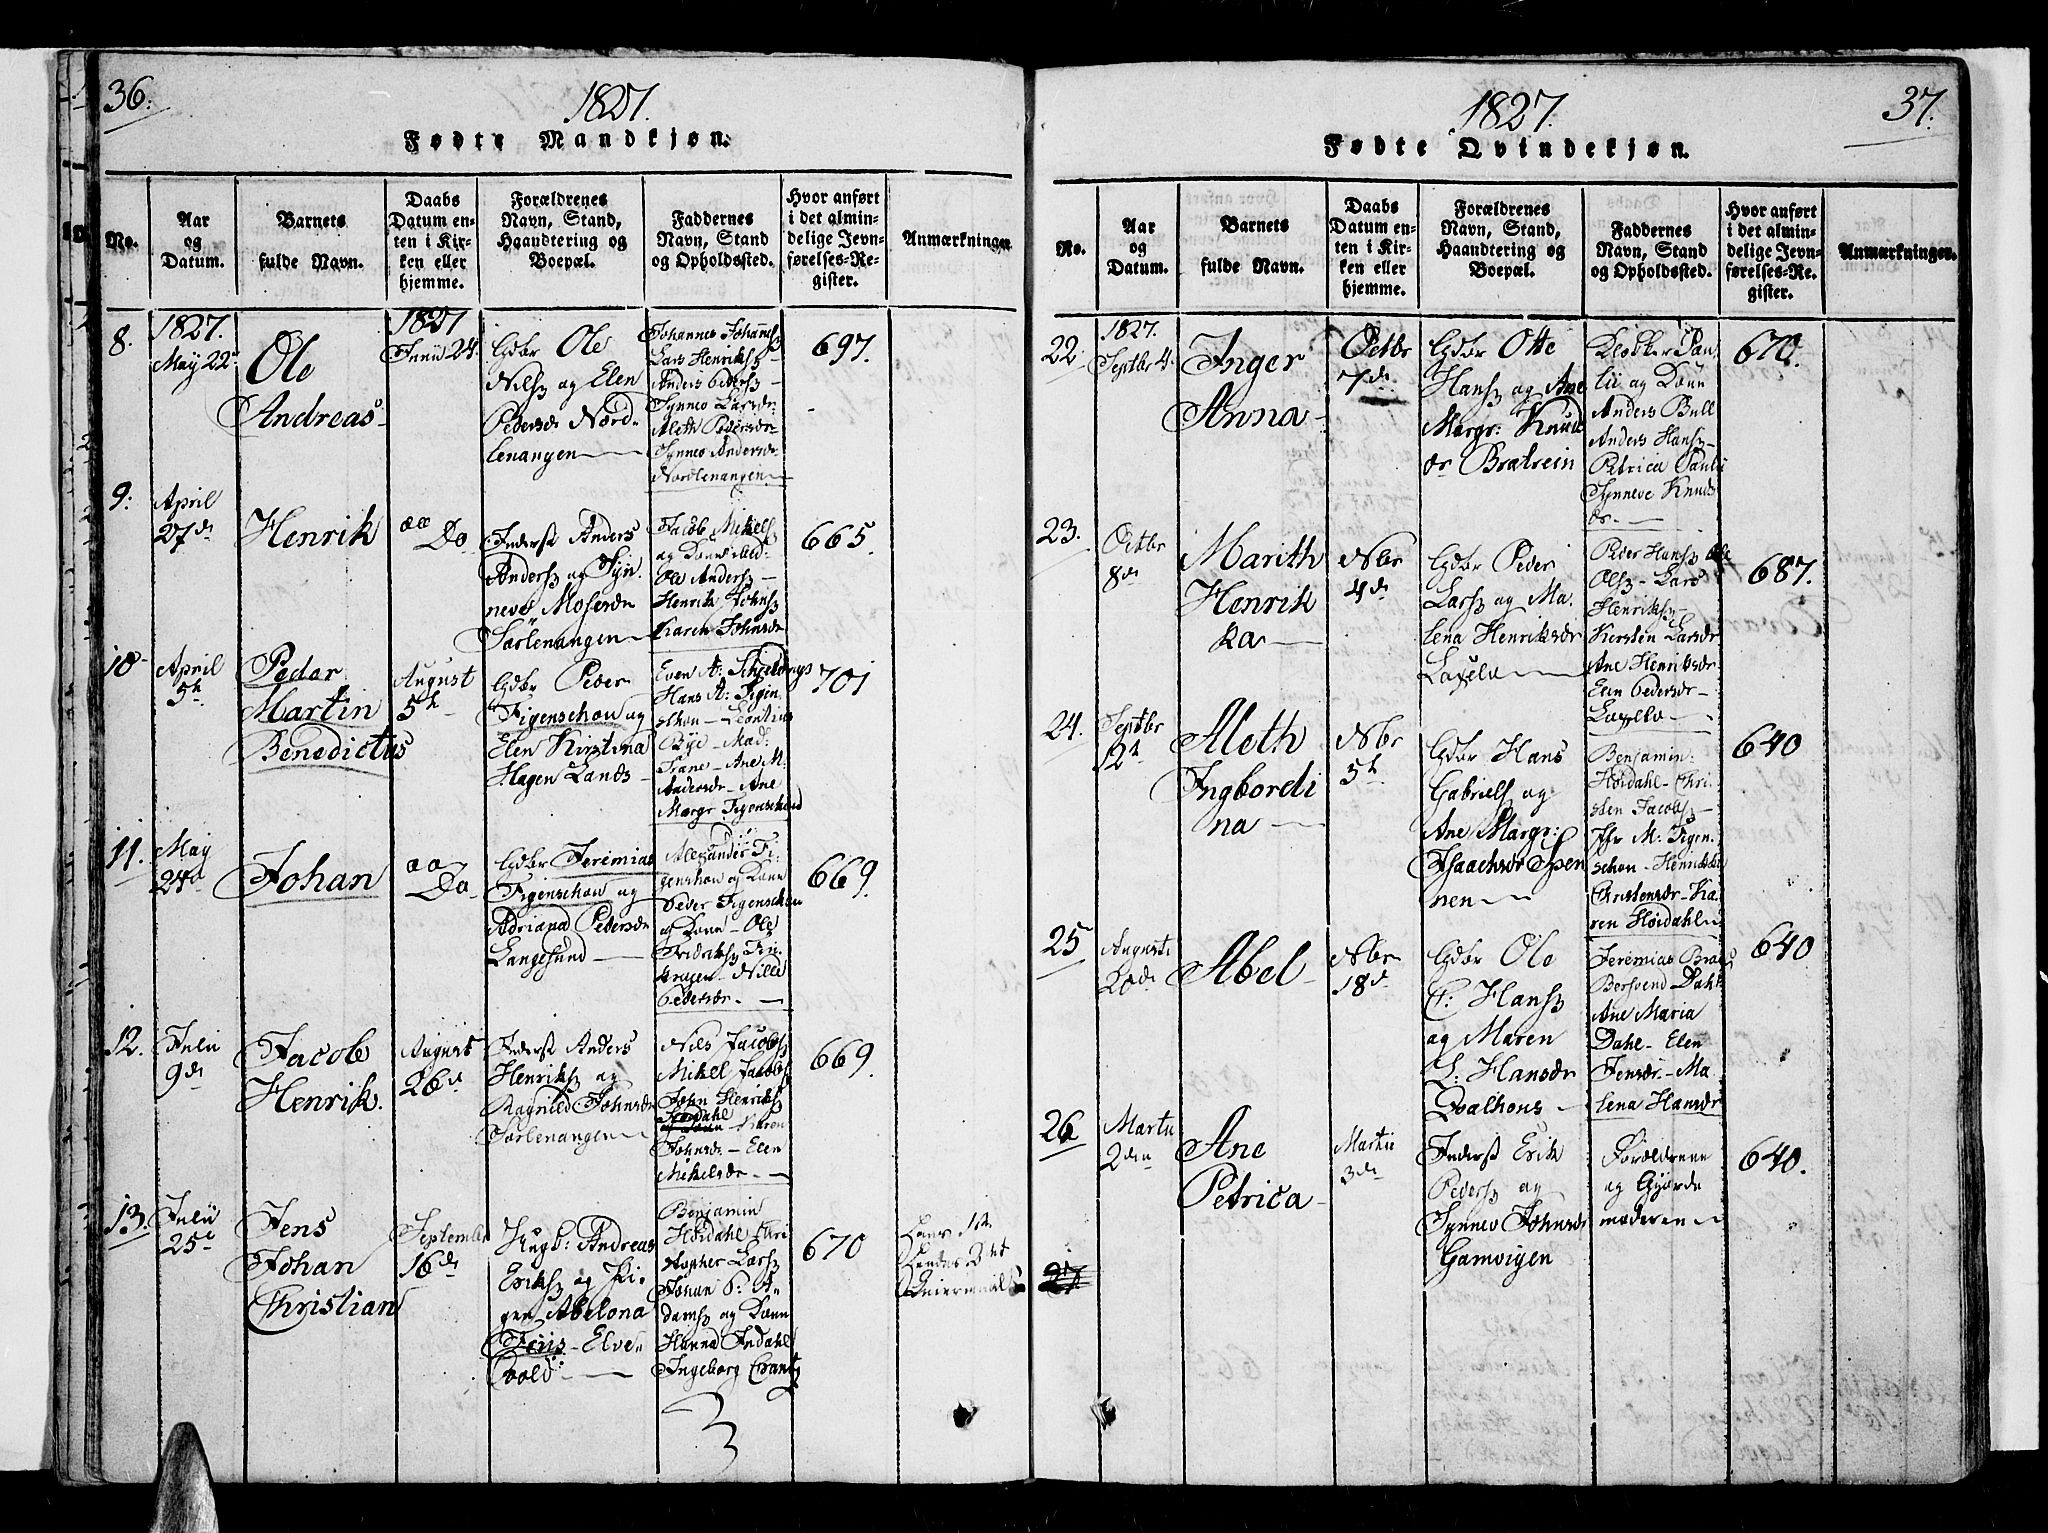 36.
1827.
Fødte Mandkjøn.
No.
Aar
og
Datum.
Barnets
fulde Navn.
Daabs
Datum en-
ten i Kir-
ken eller
hjemme.
Forældrenes
Navn, Stand,
Haandtering og
Boepæl.
Faddernes
Navn, Stand
og Opholdssted.
Hvor anført
i det almin-
delige Jevn-
førelses-Re-
gister.
Anmærkninger.
8.
1827.
May 22
Ole
Andreas
1827
Junii 24.
Gdbr Ole
Nils og Elen
Pedersdr Nord-
lenangen
Johannes Johannes
Lars Henriks
Anders Peders
Synnev Larsdr
Aleth Pedersdr
Synnev Andersdr
Nordlenangen
697.
9.
April
27de
Henrik
Do
Inderst Anders
Anders og Syn
nev Mosesdr
Sørlenangen
Jacob Mikels
og Kone ibid:
Ole Anders
Henrik Johns
Karen Johnsdr
665.
10
April
5te
Peder
Martin
Benedictus
August
5te
Gdbr Peder
Figenschow og
Elen Kirstina
Hagen Lands
Even A: Schjelderups
Hans A: Figen
schow - Leontius
Bye - Mad:
Trane - Ane M.
Andersdr - Ane
Margr Figenschow
701
11.
May
24de
Johan
Do
Gdbr Jeremias
Figenschow og
Adriana Pedersdr
Langesund
Alexander Fi-
genschow og Kone
Peder Figenschow
og Kone - Ole
Fredriks Fin
kroken Nille
Pedersdr
669.
12.
Julii
9de
Jacob
Henrik.
August
26de
Inderst Anders
Henriks og
Ragnild Johnsdr
Sørlenangen
Nils Jacobs
Mikel Jacobs
John Henriks
Karen
Johnsdr - Elen
Mikelsdr
669.
13.
Julii
25de
Jens
Johan
Christian
September
16de
Ungk: Andreas
Eriks og Pi-
gen Abelona
Jens - Elve-
vold
Benjamin
Høidahl Chri
stopher Lars
Johan P: A-
dams og Kone
Hanna Indahl
Ingeborg Crantz
670
Hans 1ste
Hendes 2det
Leiermaal
37.
1827.
Fødte Qvindekjøn.
No.
Aar
og
Datum.
Barnets
fulde Navn.
Daabs
Datum en-
ten i Kir-
ken eller
hjemme.
Forældrenes
Navn, Stand,
Haandtering og
Boepæl.
Faddernes
Navn, Stand
og Opholdssted.
Hvor anført
i det almin-
delige Jevn-
førelses-Re-
gister.
Anmærkninger.
22
1827.
Septbr 4.
Inger
Anna
Octbr
7de
Gdbr Otte
Hans og Ane
Margr: Knud
dr Bratrein
Klokker Pau
li og Kone
Anders Bull
Anders Hans
Petrica Pauli
Synneve Knuds
dr
670.
23.
Octbr
8de
Marith
Henrik
ka
Nbr
4de
Gdbr Peder
Lars og Ma-
lena Henriksdr
Laxelv
Peder Hans Ole
Ols - Lars
Henriks
Kirsten Larsdr
Ane Henriksdr
Elen Pedersdr
Laxelv
687.
24.
Septbr
12te
Aleth
Ingbordi
na
Nbr
5te
Gdbr Hans
Gabriels og
Ane Margr:
Isaachsdr Spen
nen
Benjamin
Høidahl - Chri
sten Jacobs
Jfr M: Figen
schou - Henrikka
Christensdr - Ka
ren Høidahl
640
25
Augusti
20de
Abel
Nbr
18de
Gdbr Ole
C: Hans
og Maren
S: Hansdr
Qvalhons
Jeremias Bra
Bersvend Dahl
Ane Maria
Dahl - Elen
Jensdr - Ma
lena Hansdr
640
26
Martii
2den
Ane
Petrica
Martii
3de
Inderst Erik
Peders og
Synnev Johnsdr
Gamvigen
Forældrene
og Gjorde
moderen
640.
27.